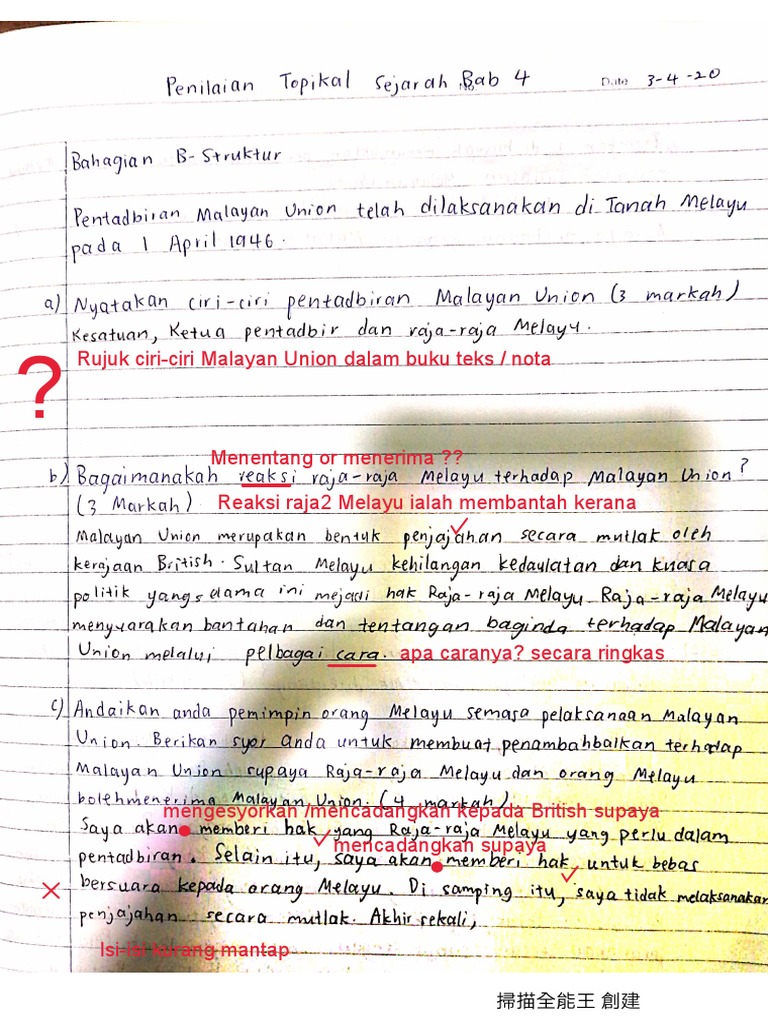 Penilaian Topikal Sejarah Bab 4
No.
Date 3-4-20
Bahagian B-Struktur
Pentadbiran Malayan Union telah dilaksanakan di Tanah Melayu
pada 1 April 1946.
a) Nyatakan ciri-ciri pentadbiran Malayan Union (3 markah)
Kesatuan, Ketua pentadbir dan raja-raja Melayu.
Rujuk ciri-ciri Malayan Union dalam buku teks / nota
?
Menentang or menerima ??
b) Bagaimanakah reaksi raja-raja Melayu terhadap Malayan Union?
(3 Markah) Reaksi raja2 Melayu ialah membantah kerana
Malayan Union merupakan bentuk penjajahan secara mutlak oleh
kerajaan British. Sultan Melayu kehilangan kedaulatan dan kuasa
politik yang selama ini mejadi hak Raja-raja Melayu. Raja-raja Melayu
menyuarakan bantahan dan tentangan baginda terhadap Malayan
Union melalui pelbagai cara. apa caranya? secara ringkas
c) Andaikan anda pemimpin orang Melayu semasa pelaksanaan Malayan
Union. Berikan syor anda untuk membuat penambahbaikan terhadap
Malayan Union supaya Raja-raja Melayu dan orang Melayu
bolehmenerima Malayan Union. (4 markah)
mengesyorkan /mencadangkan kepada British supaya
Saya akan memberi hak yang Raja-raja Melayu yang perlu dalam
mencadangkan supaya
pentadbiran. Selain itu, saya akan memberi hak untuk bebas
bersuara kepada orang Melayu. Di samping itu, saya tidak melaksanakan
penjajahan secara mutlak. Akhir sekali,
Isi-isi kurang mantap
掃描全能王 創建